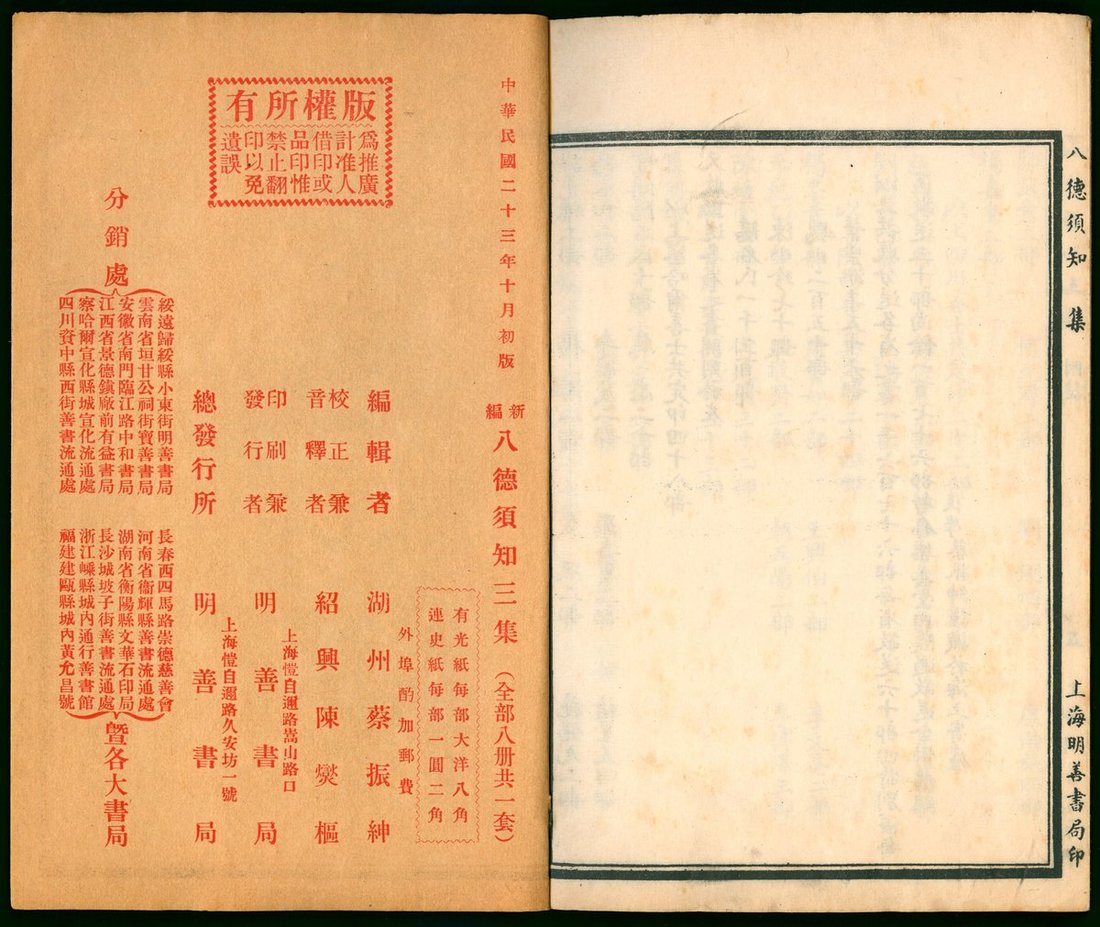 八德須知
集
上海明善書局印
中華民國二十三年十月初版
新編
八德須知三集(全部八册共一套)
有光紙每部大洋八角
連史紙每部一圓二角
外埠酌加郵費
編輯者 湖州蔡振紳
校正兼
音釋者 紹興陳爕樞
印刷兼
發行者 明善書局
上海愷自邇路嵩山路口
總發行所 明善書局
上海愷自邇路久安坊一號
版權所有
爲推廣
計准人
借印或
品印惟
禁止翻
印以免
遺誤
分銷處
綏遠歸綏縣小東街明善書局
雲南省垣甘公祠街寶善書局
安徽省南門臨江路中和書局
江西省景德鎮廠前有益書局
察哈爾宣化縣城宣化流通處
四川資中縣西街善書流通處
長春西四馬路崇德慈善會
河南省衞輝縣善書流通處
湖南省衡陽縣文華石印局
長沙城坡子街善書流通處
浙江嵊縣城內通行善書館
福建建甌縣城內黃允昌號
暨各大書局